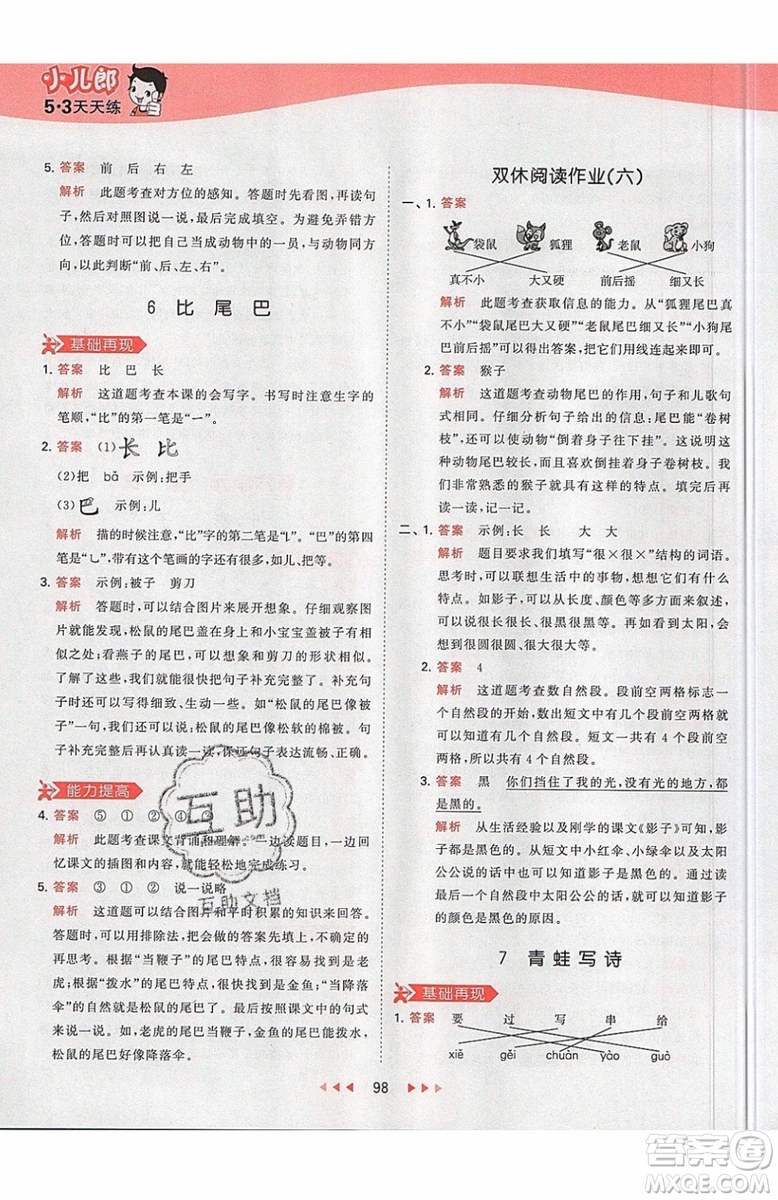 小儿郎
5·3天天练
5. 答案 前 后 右 左
解析 此题考查对方位的感知。答题时先看图,再读句
子,然后对照图说一说,最后完成填空。为避免弄错方
位,答题时可以把自己当成动物中的一员,与动物同方
向,以此判断“前、后、左、右”。
6 比 尾 巴
基础再现
1. 答案 比 巴 长
解析 这道题考查本课的会写字。书写时注意生字的
笔顺,“比”的第一笔是“一”。
2. 答案 (1)长 比
(2)把 bǎ 示例:把手
(3)巴 示例:儿
解析 描的时候注意,“比”字的第二笔是“㇙”。“巴”的第四
笔是“乚”,带有这个笔画的字还有很多,如儿、把等。
3. 答案 示例:被子 剪刀
解析 答题时,可以结合图片来展开想象。仔细观察图
片就能发现:松鼠的尾巴盖在身上和小宝宝盖着被子有
相似之处;看燕子的尾巴,可以想象和剪刀的形状相似。
了解了这些以后,我们就能轻松地把句子补充完整了。
句子时还可以再写得细致、生动一些。如:松鼠的尾巴像被
子”一句,可以补充完整为:松鼠的尾巴像松软的棉被。句
子补充完整后再认真读一读,保证句子表达流畅、正确。
能力提高
4. 答案 ⑤ ① ② ④ ⑥
解析 此题考查课文背诵和理解。答题时,一边读一边回
忆课文的插图和内容,就能轻松地完成练习。
5. 答案 ③ ① ② 说一说略
解析 这道题可以结合图片和平时积累的知识来回答。
答题时,可以用排除法,把会做的答案先填上,不明白的
再根据图片来填。如“当鞭子”的尾巴特点,很容易想到老
虎;根据“拨水”的尾巴特点,很容易想到金鱼;“当降落
伞”的尾巴就是松鼠的尾巴了。最后按照课文中的句式来
说一说。如,老虎的尾巴当鞭子,金鱼的尾巴能拨水,
松鼠的尾巴好像降落伞。
双休阅读作业(六)
一、1. 答案
袋鼠 狐狸 老鼠 小狗
真不小 大又硬 前后摇 细又长
解析 此题考查获取信息的能力。从“狐狸尾巴真
不小”“袋鼠尾巴大又硬”“老鼠尾巴细又长”“小狗尾
巴前后摇”这些句子中,就可以用线连起来了。
2. 答案 猴子
解析 这道题考查动物尾巴的作用,句子和儿歌句
式相同。仔细分析句子给出的信息:尾巴能“卷树
枝”,这种动物“倒着身子往下挂”。我们可以知道,
这种动物尾巴较长,能倒着身子,能卷树枝。这是我
们非常熟悉的猴子所具有的特点。填完后可以再
读一读,记一记。
二、1. 答案 示例:长 长 大 大
解析 题目要求我们填“很×很×”结构的词语。
思考时,可以联想生活中的事物,想想它们有什么
特点。如影子,可以从长度、颜色等多方面来叙述,可以
说很长很长、很黑很黑等。再如看到太阳,可以想
到很圆很圆、很大很大等。
2. 答案 4
解析 这道题考查数自然段。段前空两格标志一
个自然段的开始,数出短文中有几个段前空两格就
可以知道有几个自然段了。这篇短文有4个段前空
两格,所以可以知道有4个自然段。
3. 答案 黑 你们挡住了我的光,没有光的地方,
都是黑的。
解析 从生活经验以及刚学的课文《影子》可以知道,影
子都是黑色的。从短文中小红伞、小绿伞以及太阳
公公说的话中,找到太阳公公的话,就可以知道影子
的颜色是黑色的原因。
7 青 蛙 写 诗
基础再现
1. 答案 要 过 写 串 给
xiě gěi chuàn yào guò
98
互助
互助文档
答案圈
MXQE.COM